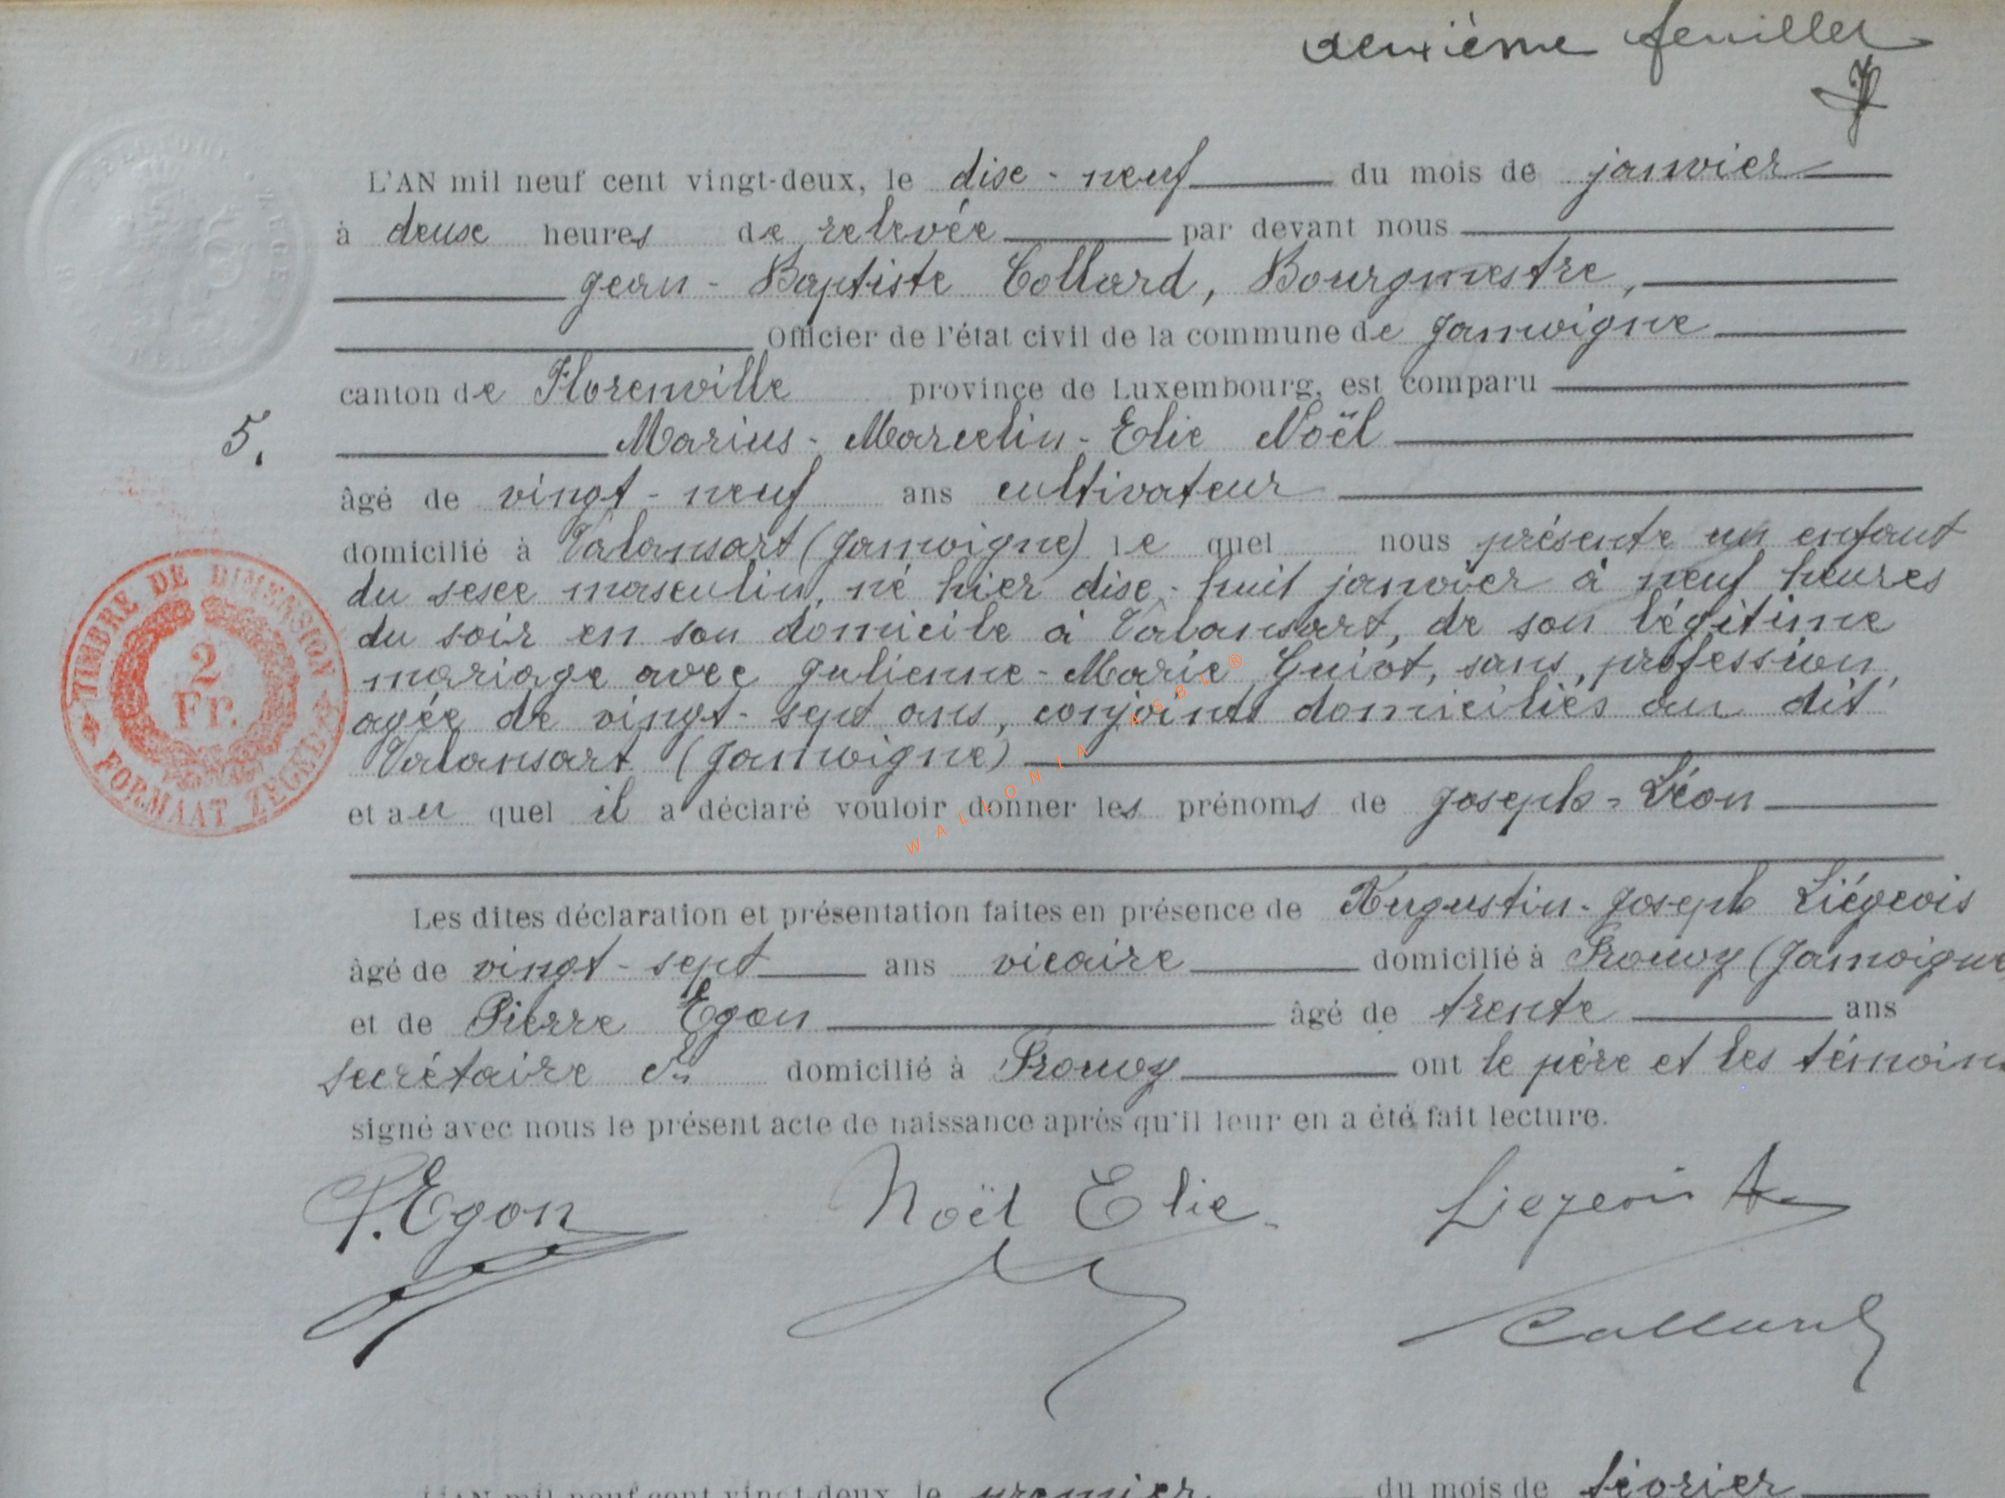 deuxième feuillet
L'AN mil neuf cent vingt-deux, le dix-neuf du mois de janvier
à deux heures de relevée par devant nous
Jean-Baptiste Collard, Bourgmestre,
Officier de l'état civil de la commune de Jamoigne
canton de Florenville province de Luxembourg, est comparu
5. Marius-Marcelin-Elie Noël
âgé de vingt-neuf ans cultivateur
domicilié à Valansart (Jamoigne) le quel nous présente un enfant
du sexe masculin, né hier dix-huit janvier à neuf heures
du soir en son domicile à Valansart, de son légitime
mariage avec Julienne-Marie Guiot, sans profession,
agée de vingt-sept ans, conjoints domiciliés au dit
Valansart (Jamoigne)
et au quel il a déclaré vouloir donner les prénoms de Joseph-Léon
Les dites déclaration et présentation faites en présence de Augustin-Joseph Liégeois
âgé de vingt-sept ans vicaire domicilié à Prouvy (Jamoigne
et de Pierre Egon âgé de trente ans
secrétaire cl domicilié à Prouvy ont le père et les témoins
signé avec nous le présent acte de naissance après qu'il leur en a été fait lecture.
P. Egon Noël Elie Liégeois A
Collard
L'AN mil neuf cent vingt-deux, le premier du mois de février
TIMBRE DE DIMENSION
2
Fr.
FORMAAT ZEGEL
WALLONIA ASBL ®